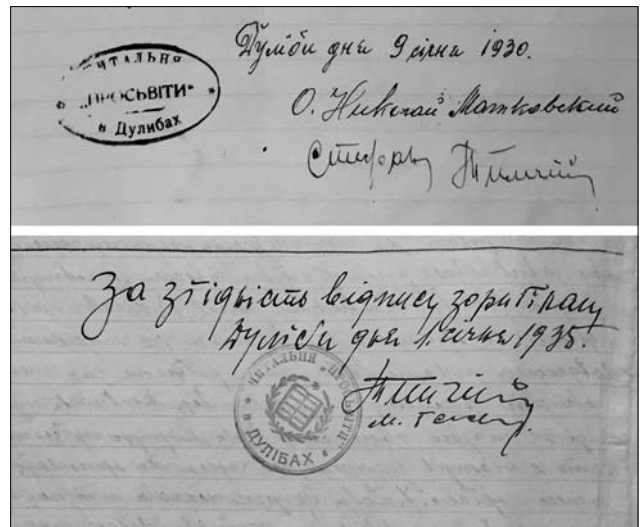 ЧИТАЛЬНЯ
„ПРОСЬВІТИ“
в Дулибах
Дуліби дня 9 січня 1930.
О. Николай Матковский
За згідність відпису з оригіналу
Дуліби дня 1. січня 1935.
ЧИТАЛЬНЯ „ПРОСЬВІТИ“
в ДУЛІБАХ